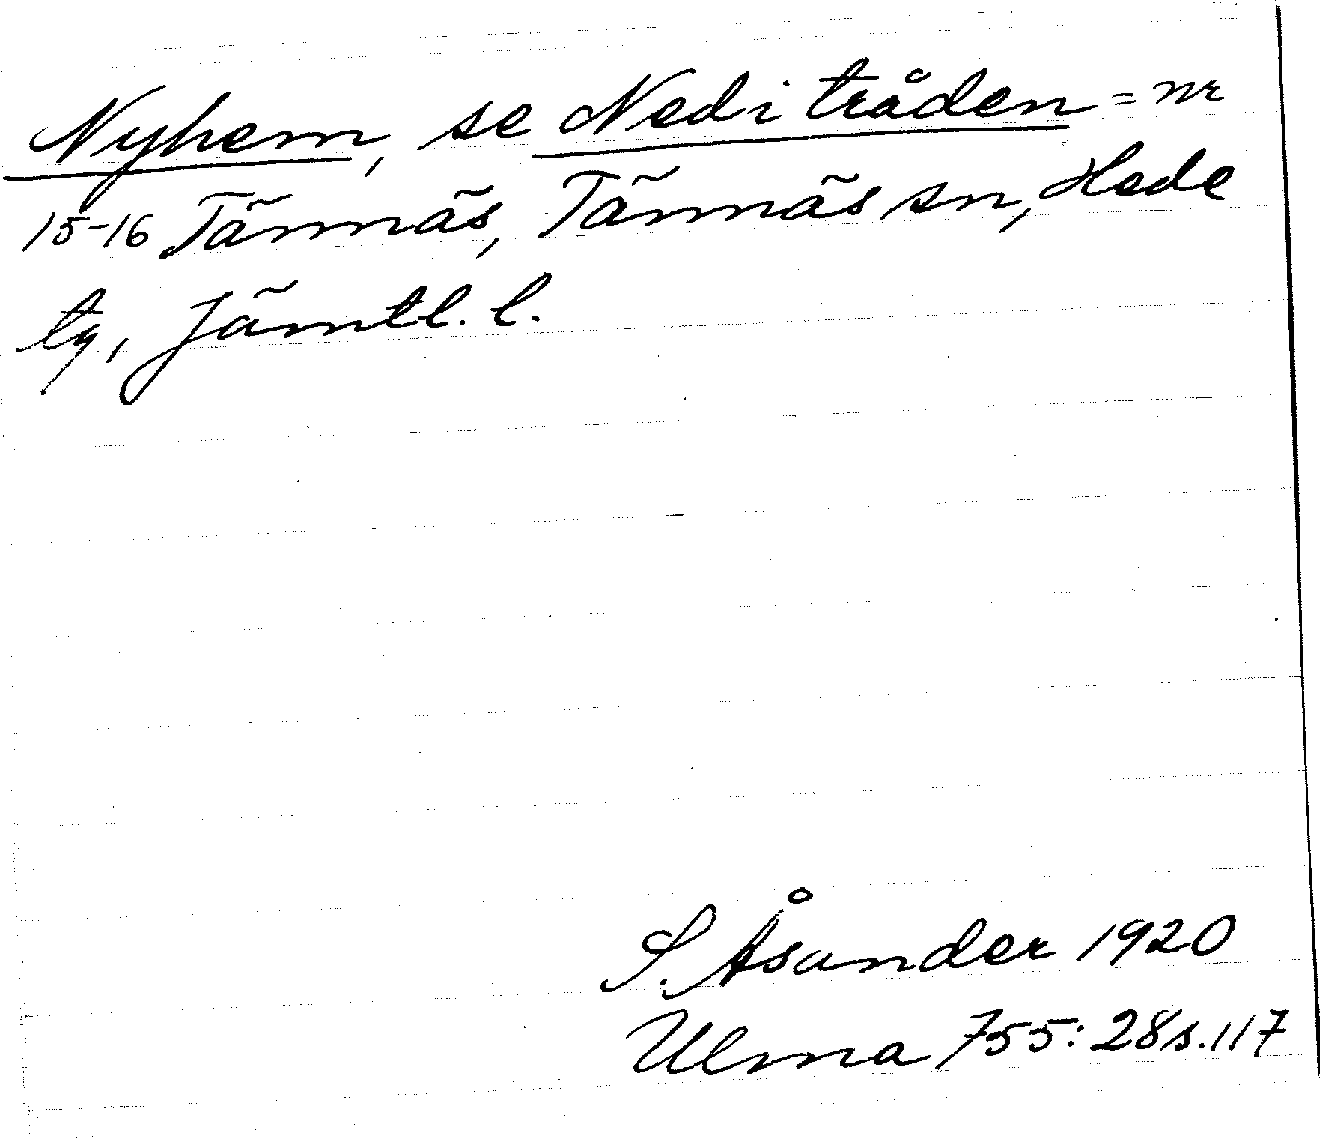 Nyhem, se Ned i tråden = nr
15-16 Tännäs, Tännäs sn, Hede
tg, Jämtl. l.
S. Åsander 1920
Ulma 755: 28 s. 117